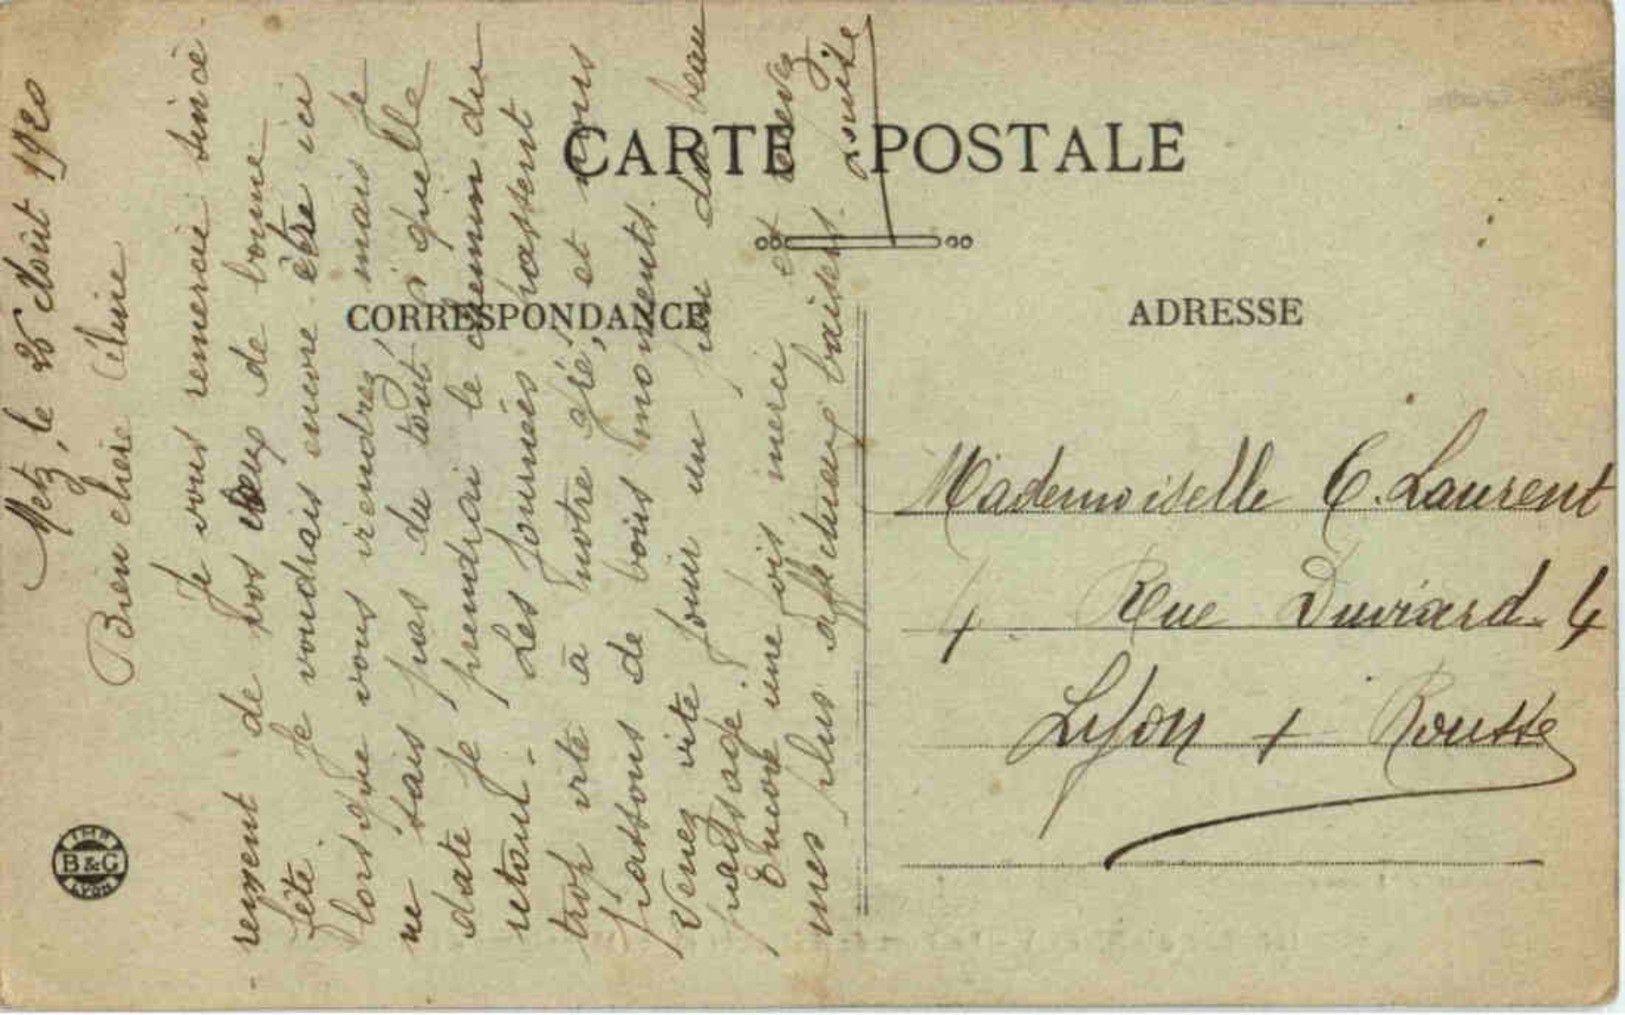 CARTE POSTALE
CORRESPONDANCE
ADRESSE
Metz, le 26 Août 1920
Bien chère Céline
Je vous remercie sincè
-rement de vos vœux de bonne
fête. Je voudrais encore être ici
lorsque vous viendrez, mais je
ne sais pas du tout à quelle
date je prendrai le chemin du
retour. Les journées passent
trop vite à notre gré, et nous
passons de bons moments.
Venez vite jouir un peu du beau
paysage.
Encore une fois merci et recevez
mes plus affectueux baisers.
suite
Mademoiselle C. Laurent
4. Rue Duviard. 4
Lyon + Rousse
IMP
B & G
LYON